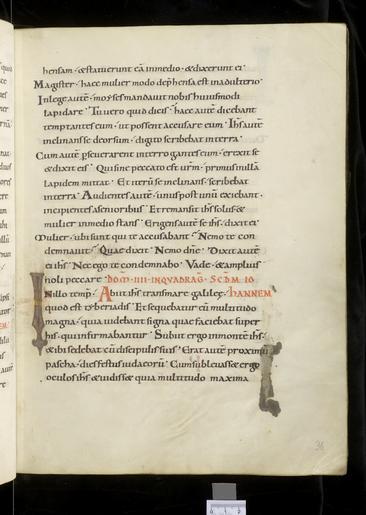 hensam · & statuerunt eā in medio · & dixerunt ei ·
Magister · haec mulier modo dep̄hensa est in adulterio ·
In lege autē · moyses mandavit nobis huiusmodi
lapidare · Tu vero quid dicis · haec autē dicebant
temptantes eum · ut possent accusare eum · Ihs autē
inclinans se deorsum · digito scribebat in terra ·
Cum autē p̄severarent interrogantes eum · erexit se
& dixit eis · Qui sine peccato est urm̄ · primus in illā
lapidem mittat · Et iterū se inclinans · scribebat
in terra · Audientes autē · unus post unū exiebant ·
incipientes a senioribus · Et remansit ihs solus · &
mulier in medio stans · Erigens autē se ihs · dixit ei ·
Mulier · ubi sunt qui te accusabant · Nemo te con
demnavit · Quae dixit · Nemo dnē · Dixit autē
ei ihs · Nec ego te condemnabo · Vade · & amplius
noli peccare · DOM̄ · IIII · IN QVADRAG̅ · SC̅DM̄ · IO
In illo temp̄ · Abiit ihs trans mare galileę · HANNEM
quod est tyberiadis · Et sequebatur eū multitudo
magna · quia videbant signa quae faciebat super
his · qui infirmabantur · Subiit ergo in montē ihs ·
& ibi sedebat cū discipulis suis · Erat autē proximū
pascha · dies festus iudaeorū · Cum sublevass& ergo
oculos ihs & vidiss& quia multitudo maxima
34